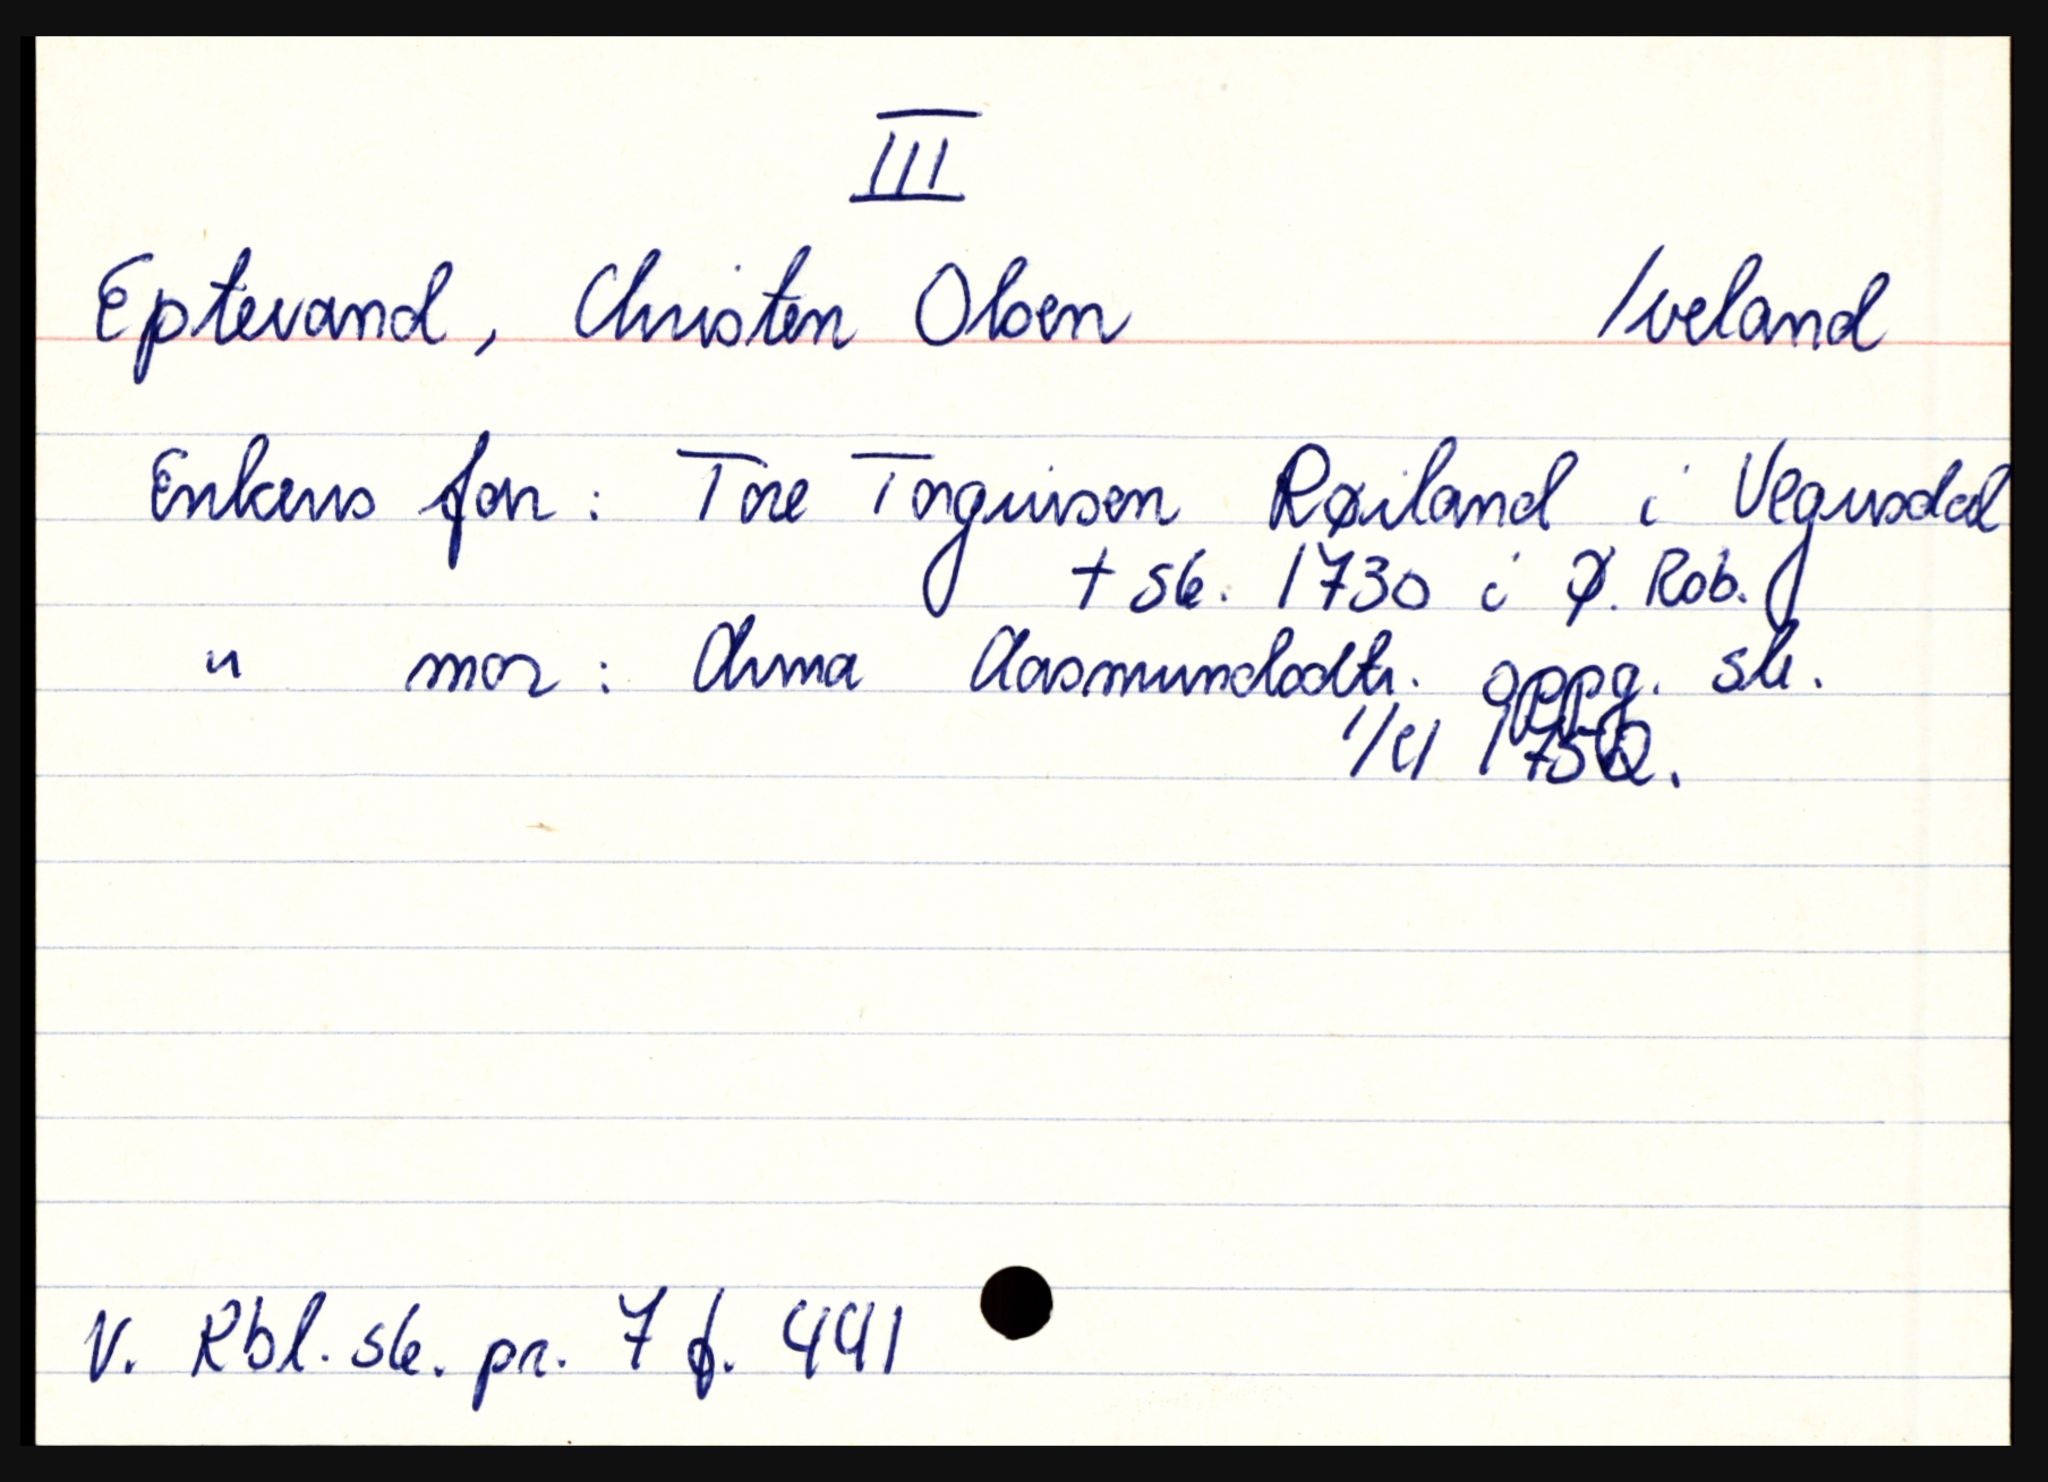 III
Eptevand, Christen Olsen Iveland
Enkens far: Tore Torgiusen Røiland i Vegusdal
+ sk. 1730 i Ø. Rob.
" mor: Anna Aasmundsdtr. oppg. sk.
1/41 f. 750.
V. Rbl. sk. pr. 7 f. 441